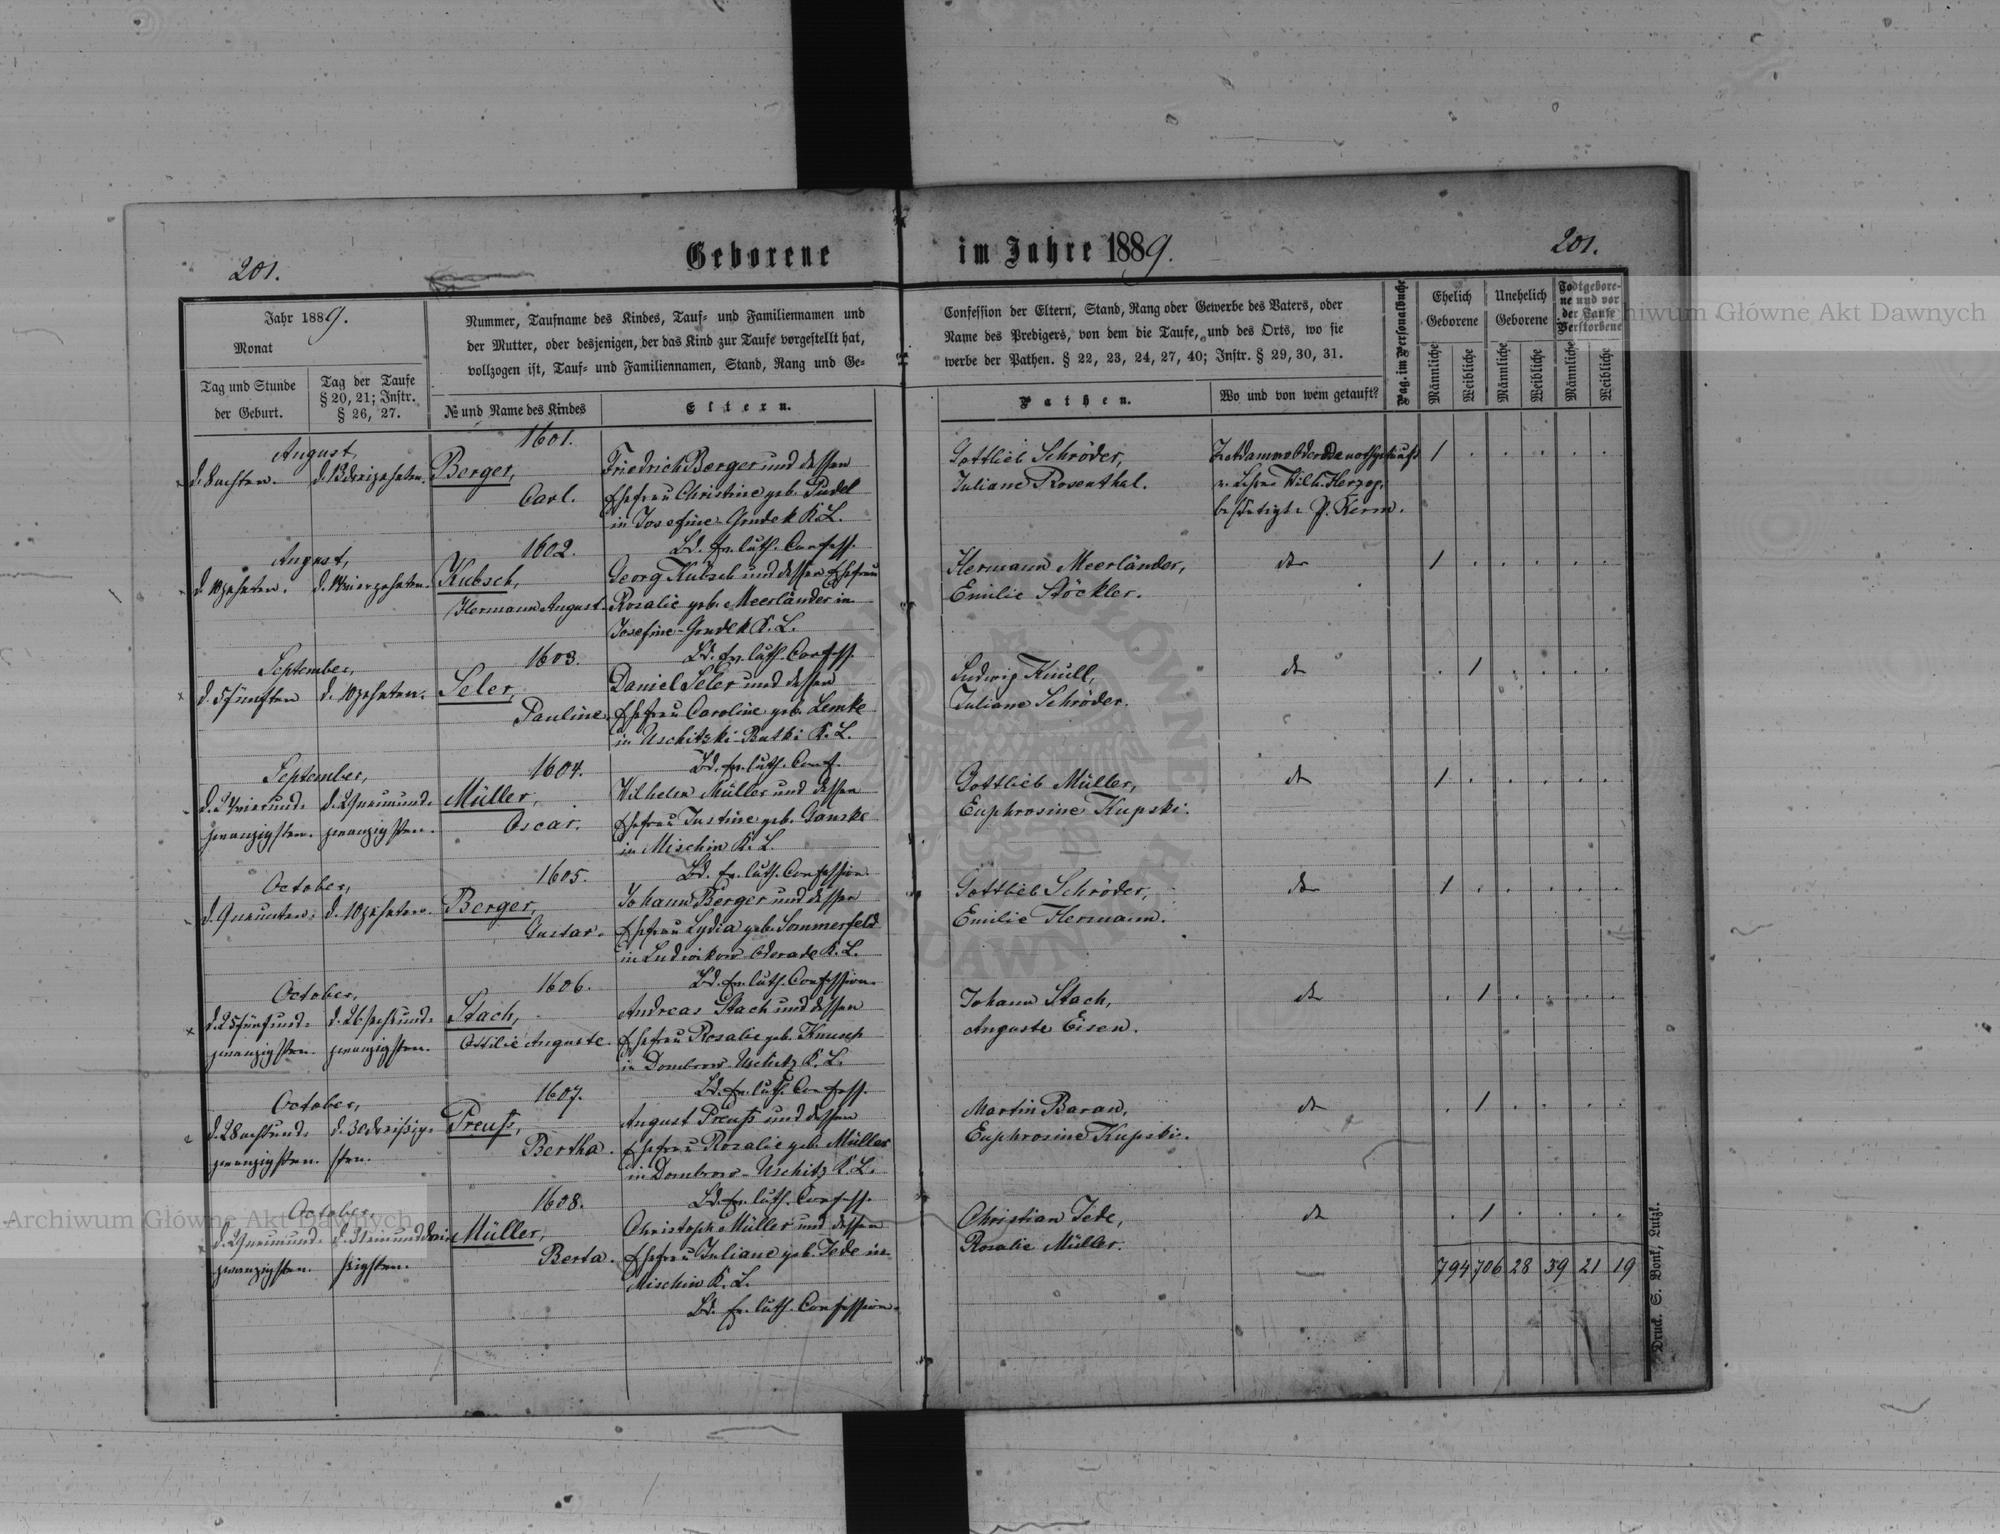 Geborene im Jahre 1889.
201.
201.
Jahr 1889.
Monat
Tag und Stunde
der Geburt.
Tag der Taufe
§ 20, 21; Instr.
§ 26, 27.
Nummer, Taufname des Kindes, Tauf- und Familiennamen und
der Mutter, oder desjenigen, der das Kind zur Taufe vorgestellt hat,
vollzogen ist, Tauf- und Familiennamen, Stand, Rang und Ge-
№ und Name des Kindes
Eltern.
Confession der Eltern, Stand, Rang oder Gewerbe des Vaters, oder
Name des Predigers, von dem die Taufe, und des Orts, wo sie
werbe der Pathen. § 22, 23, 24, 27, 40; Instr. § 29, 30, 31.
Pathen.
Wo und von wem getauft?
Pag. im Personalbuche
Ehelich
Geborene
Unehelich
Geborene
Todtgebore-
ne und vor
der Taufe
Verstorbene
Männliche
Weibliche
Männliche
Weibliche
Männliche
Weibliche
August,
d. 8 achten.
d. 13 dreizehnten.
1601.
Berger,
Carl.
Friedrich Berger und dessen
Ehefrau Christine geb. Pudel
in Josefine-Grudek K. L.
Bd. ev. luth. Confess.
Gottlieb Schröder,
Juliane Rosenthal.
nothgetauft
v. Wilh. Herzog,
bestätigt P. Kerm.
1
August,
d. 10 zehnten.
d. 14 vierzehnten.
1602.
Kubsch,
Hermann August.
Georg Kubsch und dessen Ehefrau
Rosalie geb. Meerländer in
Josefine-Grudek K. L.
Bd. ev. luth. Confess.
Hermann Meerländer,
Emilie Stöckler.
dto
1
September,
d. 5 fünften
d. 10 zehnten.
1603.
Seler,
Pauline.
Daniel Seler und dessen
Ehefrau Caroline geb. Lemke
in Uschitzki-Budki K. L.
Bd. ev. luth. Conf.
Ludwig Knüll,
Juliane Schröder.
dto
1
September,
d. 24 vierund-
zwanzigsten.
d. 29 neunund-
zwanzigsten.
1604.
Müller,
Oscar.
Wilhelm Müller und dessen
Ehefrau Justine geb. Ganske
in Mischin K. L.
Bd. ev. luth. Confession.
Gottlieb Müller,
Euphrosine Kupski.
dto
1
October,
d. 9 neunten.
d. 10 zehnten.
1605.
Berger,
Gustav.
Johann Berger und dessen
Ehefrau Lydia geb. Sommerfeld
in Ludwikow-Oderade K. L.
Bd. ev. luth. Confession.
Gottlieb Schröder,
Emilie Hermann.
dto
1
October,
d. 25 fünfund-
zwanzigsten.
d. 26 sechsund-
zwanzigsten.
1606.
Stach,
Ottilie Auguste.
Andreas Stach und dessen
Ehefrau Rosalie geb. Knusch
in Dombrow-Uschitz K. L.
Bd. ev. luth. Confess.
Johann Stach,
Auguste Eisen.
dto
1
October,
d. 28 achtund-
zwanzigsten.
d. 30 dreißig-
sten.
1607.
Preuß,
Bertha.
August Preuß und dessen
Ehefrau Rosalie geb. Müller
in Dombrow-Uschitz K. L.
Bd. ev. luth. Confess.
Martin Baran,
Euphrosine Kupski.
dto
1
October,
d. 29 neunund-
zwanzigsten.
d. 31 einunddrei-
ßigsten.
1608.
Müller,
Berta.
Christoph Müller und dessen
Ehefrau Juliane geb. Jede in
Mischin K. L.
Bd. ev. luth. Confession.
Christian Jede,
Rosalie Müller.
dto
1
794 706 28 39 21 19
Druck. S. Bonk, Lutzk.
Archiwum Główne Akt Dawnych
Archiwum Główne Akt Dawnych